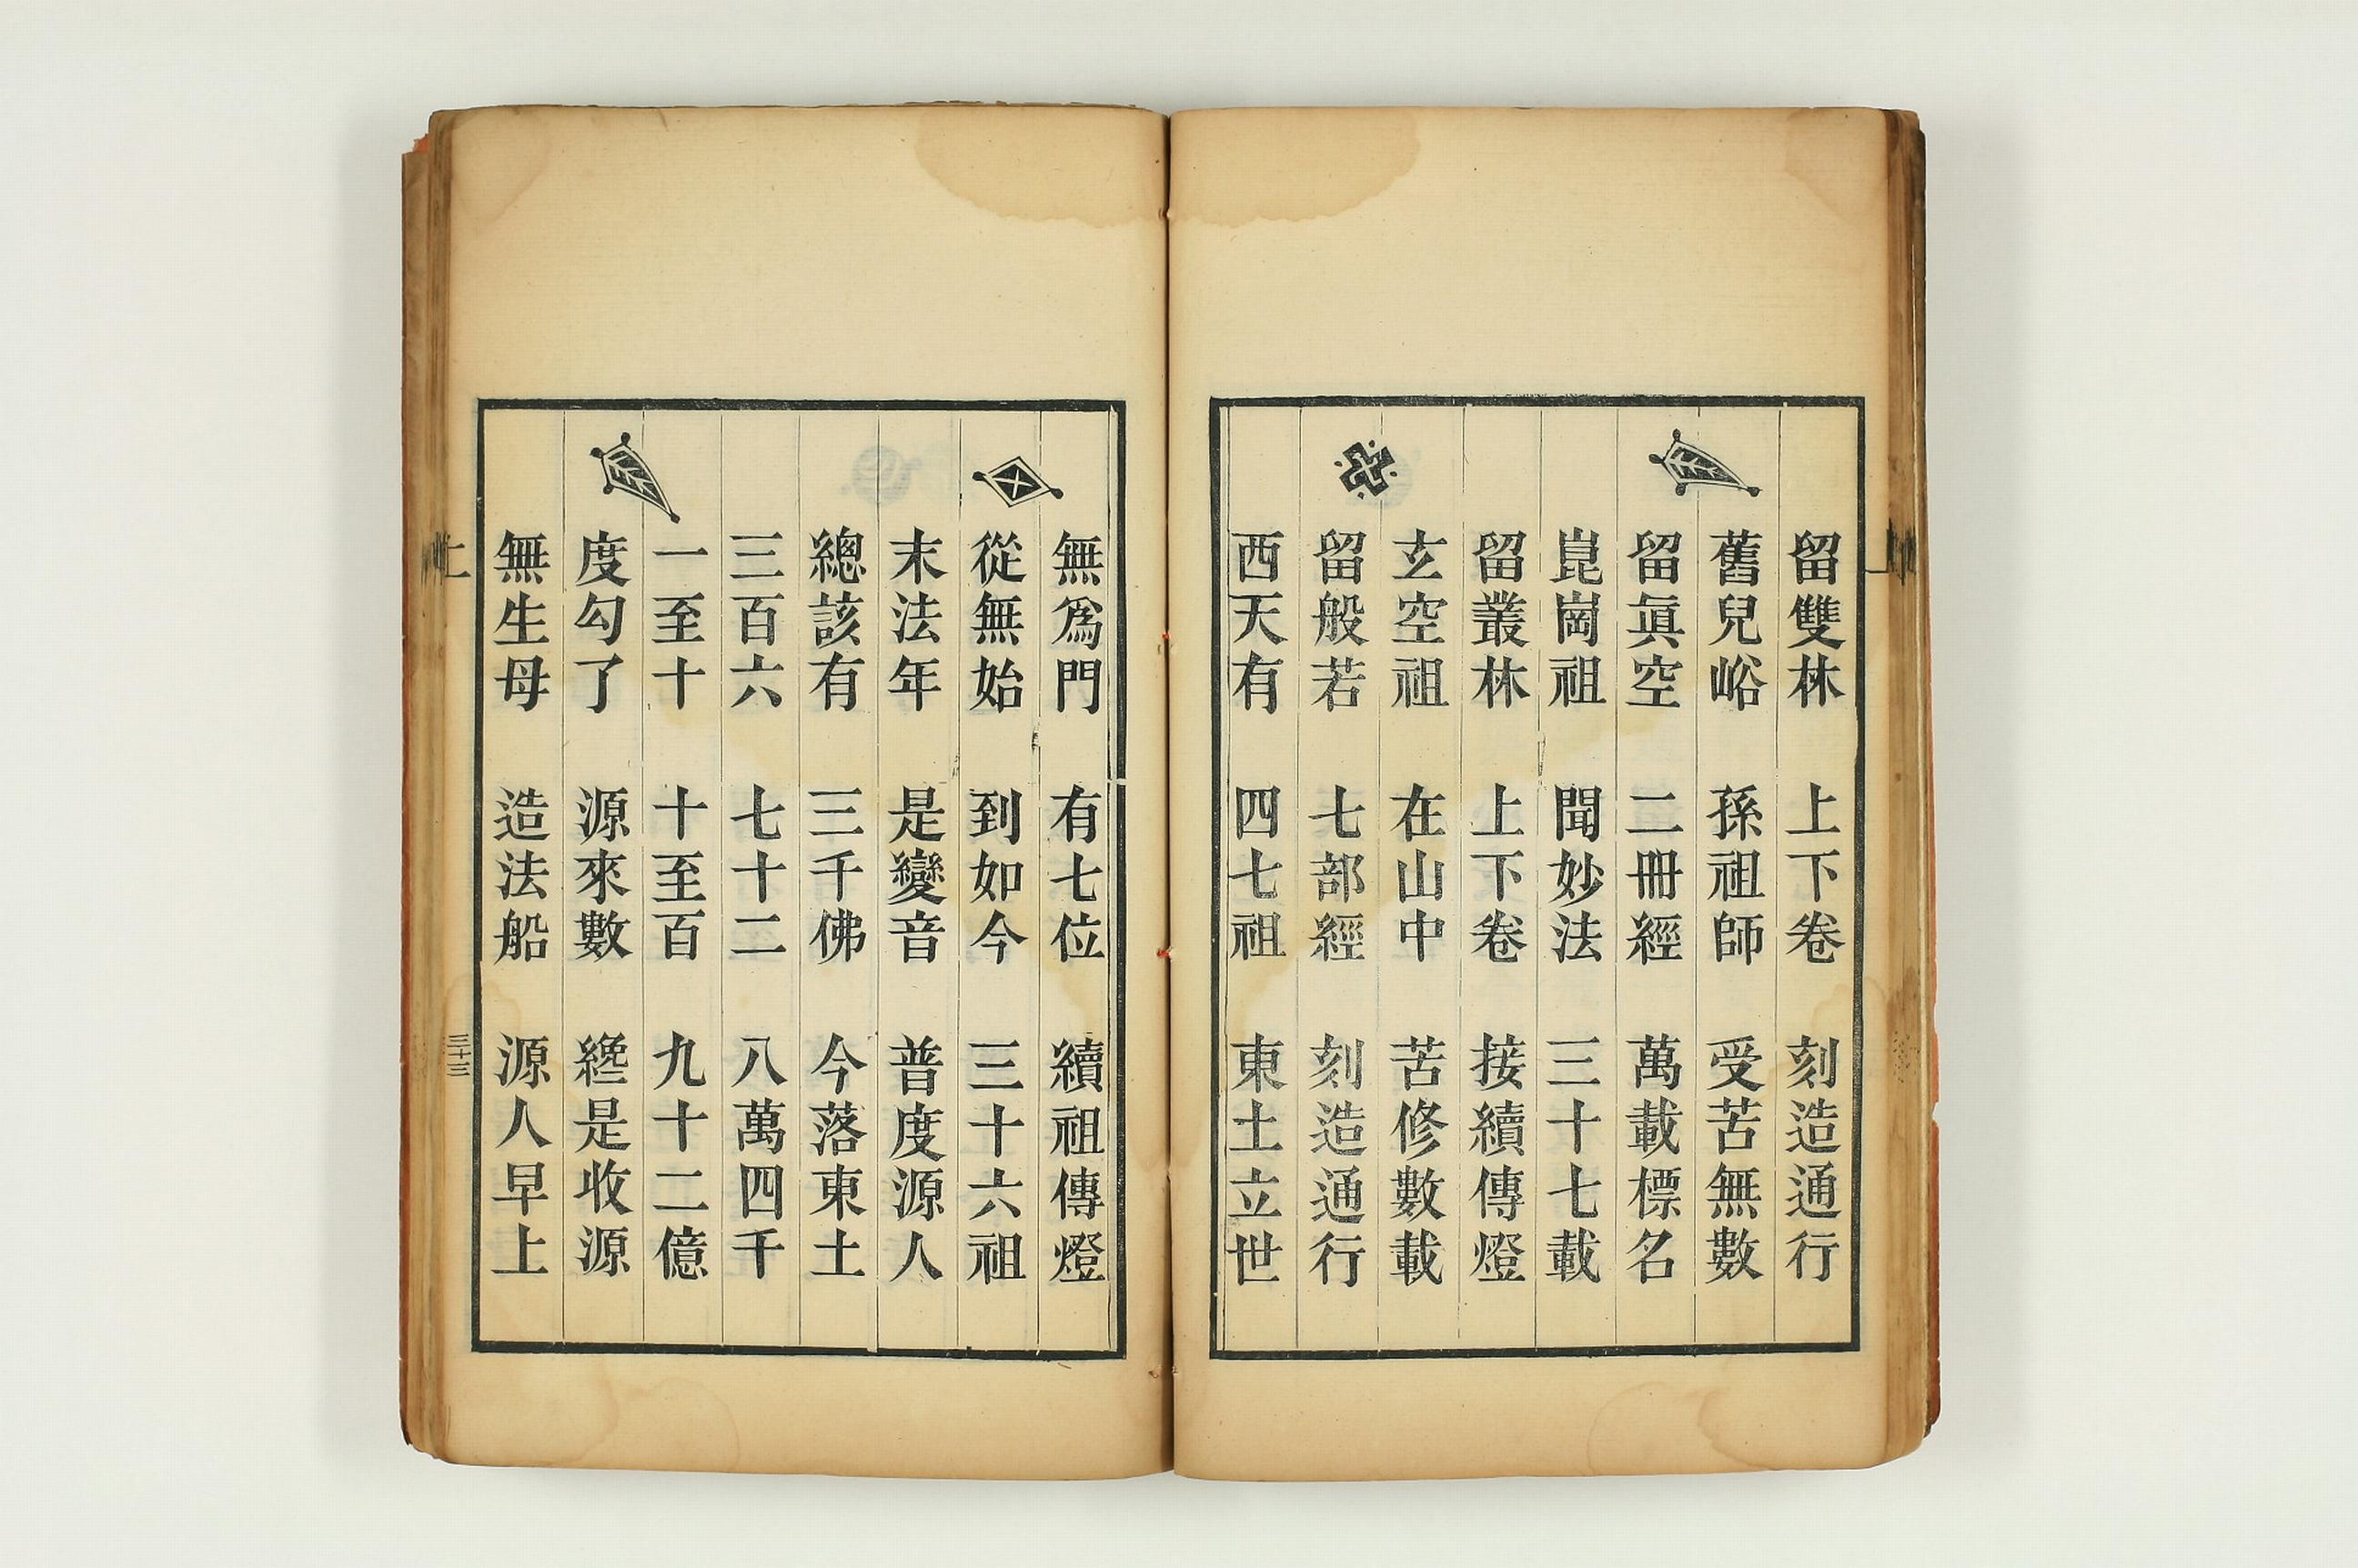 留雙林 上下卷 刻造通行
舊兒峪 孫祖師 受苦無數
留眞空 二冊經 萬載標名
崑崗祖 聞妙法 三十七載
留叢林 上下卷 接續傳燈
玄空祖 在山中 苦修數載
留般若 七部經 刻造通行
西天有 四七祖 東土立世
無爲門 有七位 續祖傳燈
從無始 到如今 三十六祖
末法年 是變音 普度源人
總該有 三千佛 今落東土
三百六 七十二 八萬四千
一至十 十至百 九十二億
度勾了 源來數 纔是收源
無生母 造法船 源人早上
三十三